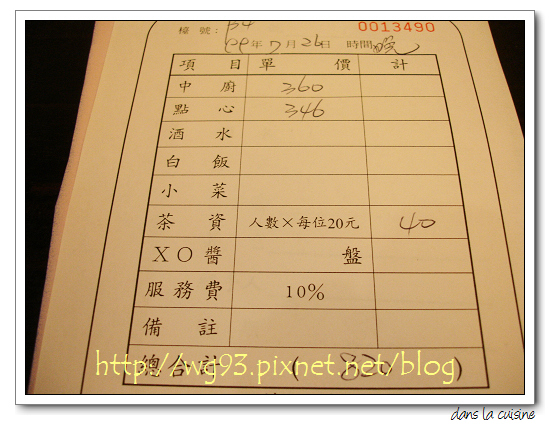 檯 號： P4 0013490
99年 7月 26日 時間 晚
項 目 單 價 計
中 廚 360
點 心 346
酒 水
白 飯
小 菜
茶 資 人數×每位20元 40
XO醬 盤
服務費 10%
備 註
總合計 ( 820 )
http://wg93.pixnet.net/blog
dans la cuisine